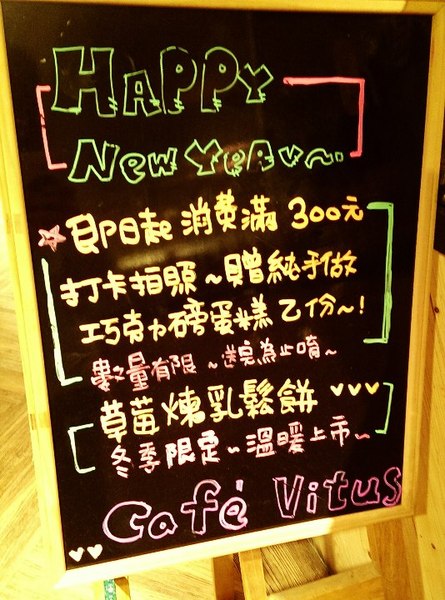 HAPPY
New YEAR~.
即日起 消費滿 300元
打卡拍照~贈純手做
巧克力磅蛋糕乙份~!
數量有限 ~送完為止唷~
草莓煉乳鬆餅
冬季限定~溫暖上市~
Café Vitus